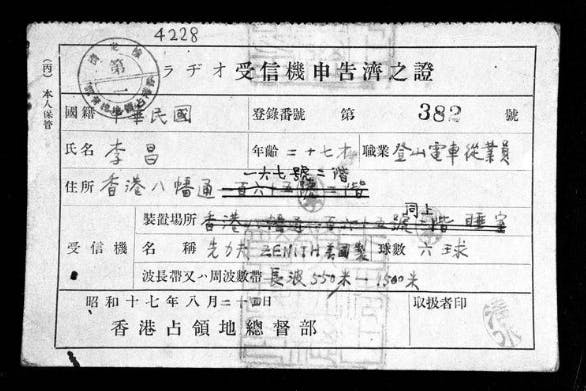 4228
(丙) 本人保管
ラヂオ受信機申告濟之證
國籍 中華民國 登錄番號 第 382 號
氏名 李昌 年齡 二十七才 職業 登山電車從業員
一六七號二階
住所 香港八幡通 一百六十五號二階
同上
裝置場所 香港八幡通一百六十五號二階 睡室
受信機 名稱 ZENITH 美國製 球數 六球
波長帶又ハ周波數帶 長波550米—1500米
昭和十七年八月二十四日 取扱者印
香港占領地總督部